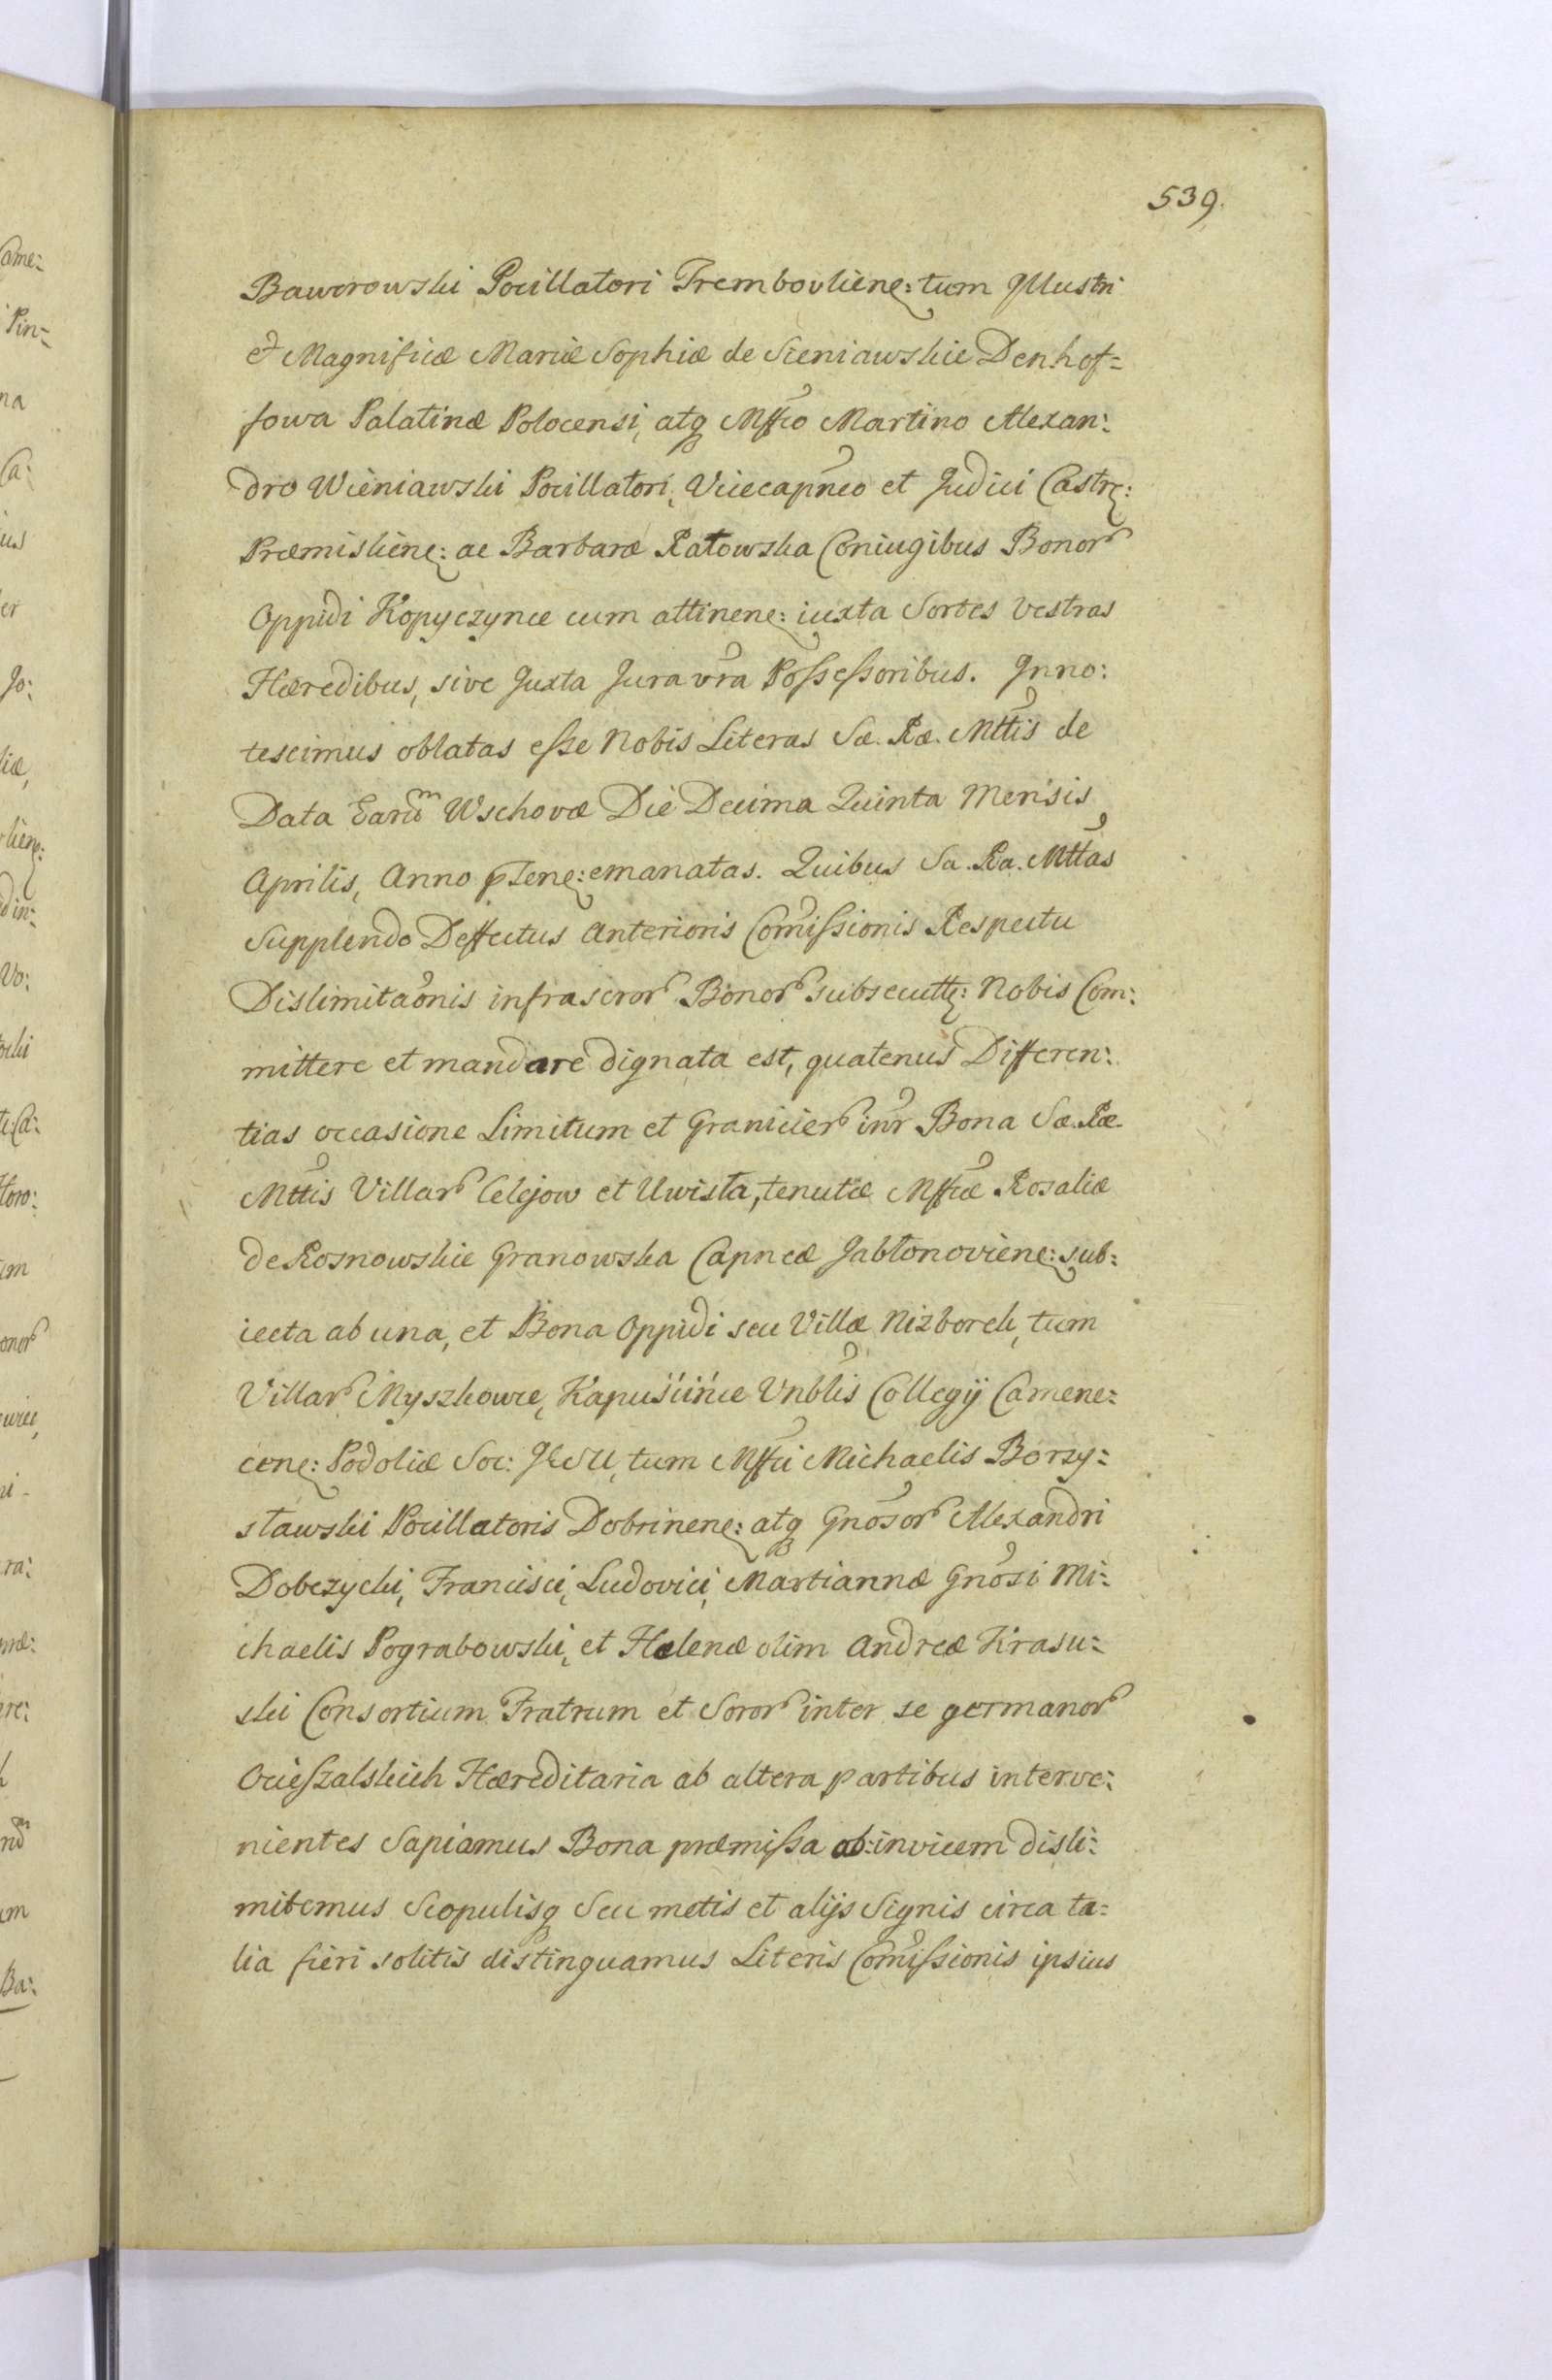 539.
Baworowski Pocillatori Trembovlienę: tum Illustri
et Magnificæ Mariæ Sophiæ de Sieniawskie Denhof=
fowa Palatinæ Polocensi, atq Mffco Martino Alexan:
dro Wieniawski Pocillatori, Vicecapneo et Judici Castrę:
Præmislienę: ac Barbaræ Ratowska Coniugibus Bonor
Oppidi Kopyczynce cum attinenę: iuxta Sortes vestras
Hæredibus, sive Juxta Jura vra Possessoribus. Inno:
tescimus oblatas esse Nobis Literas Sæ. Ræ. Mttis de
Data Eard̃m Wschovæ Die Decima Quinta Mensis
Aprilis, Anno p̃senę: emanatas. Quibus Sa. Ra. Mttas
Supplendo Deffectus Anterioris Com̃issionis Respectu
Dislimita͠onis infrascror Bonor subsecuttę: Nobis Com:
mittere et mandare dignata est, quatenus Differen:
tias occasione Limitum et Granicier inr̃ Bona Sæ. Ræ.
Mttis Villar Celejow et Uwisła, tenutæ Mffcæ Rosaliæ
de Rosnowskie Granowska Capneæ Jabłonovienę: sub:
iecta ab una, et Bona Oppidi seu Villæ Nizborek, tum
Villar Myszkowce, Kapuśćińce Vnblis Collegij Camene:
cenę: Podoliæ Soc: JESU, tum Mffci Michaelis Borzy:
sławski Pocillatoris Dobrinenę: atq Gnosor Alexandri
Dobczycki, Francisci, Ludovici, Martiannæ Gnosi Mi:
chaelis Pograbowski, et Helenæ olim Andreæ Krasu:
ski Consortium Fratrum et Soror inter se germanor
Ocieszalskich Hæreditaria ab altera partibus interve:
nientes Sapiamus Bona præmissa ab:invicem disli:
mitemus Scopulisq Seu metis et alijs Signis circa ta=
lia fieri solitis distinguamus Literis Com̃issionis ipsius